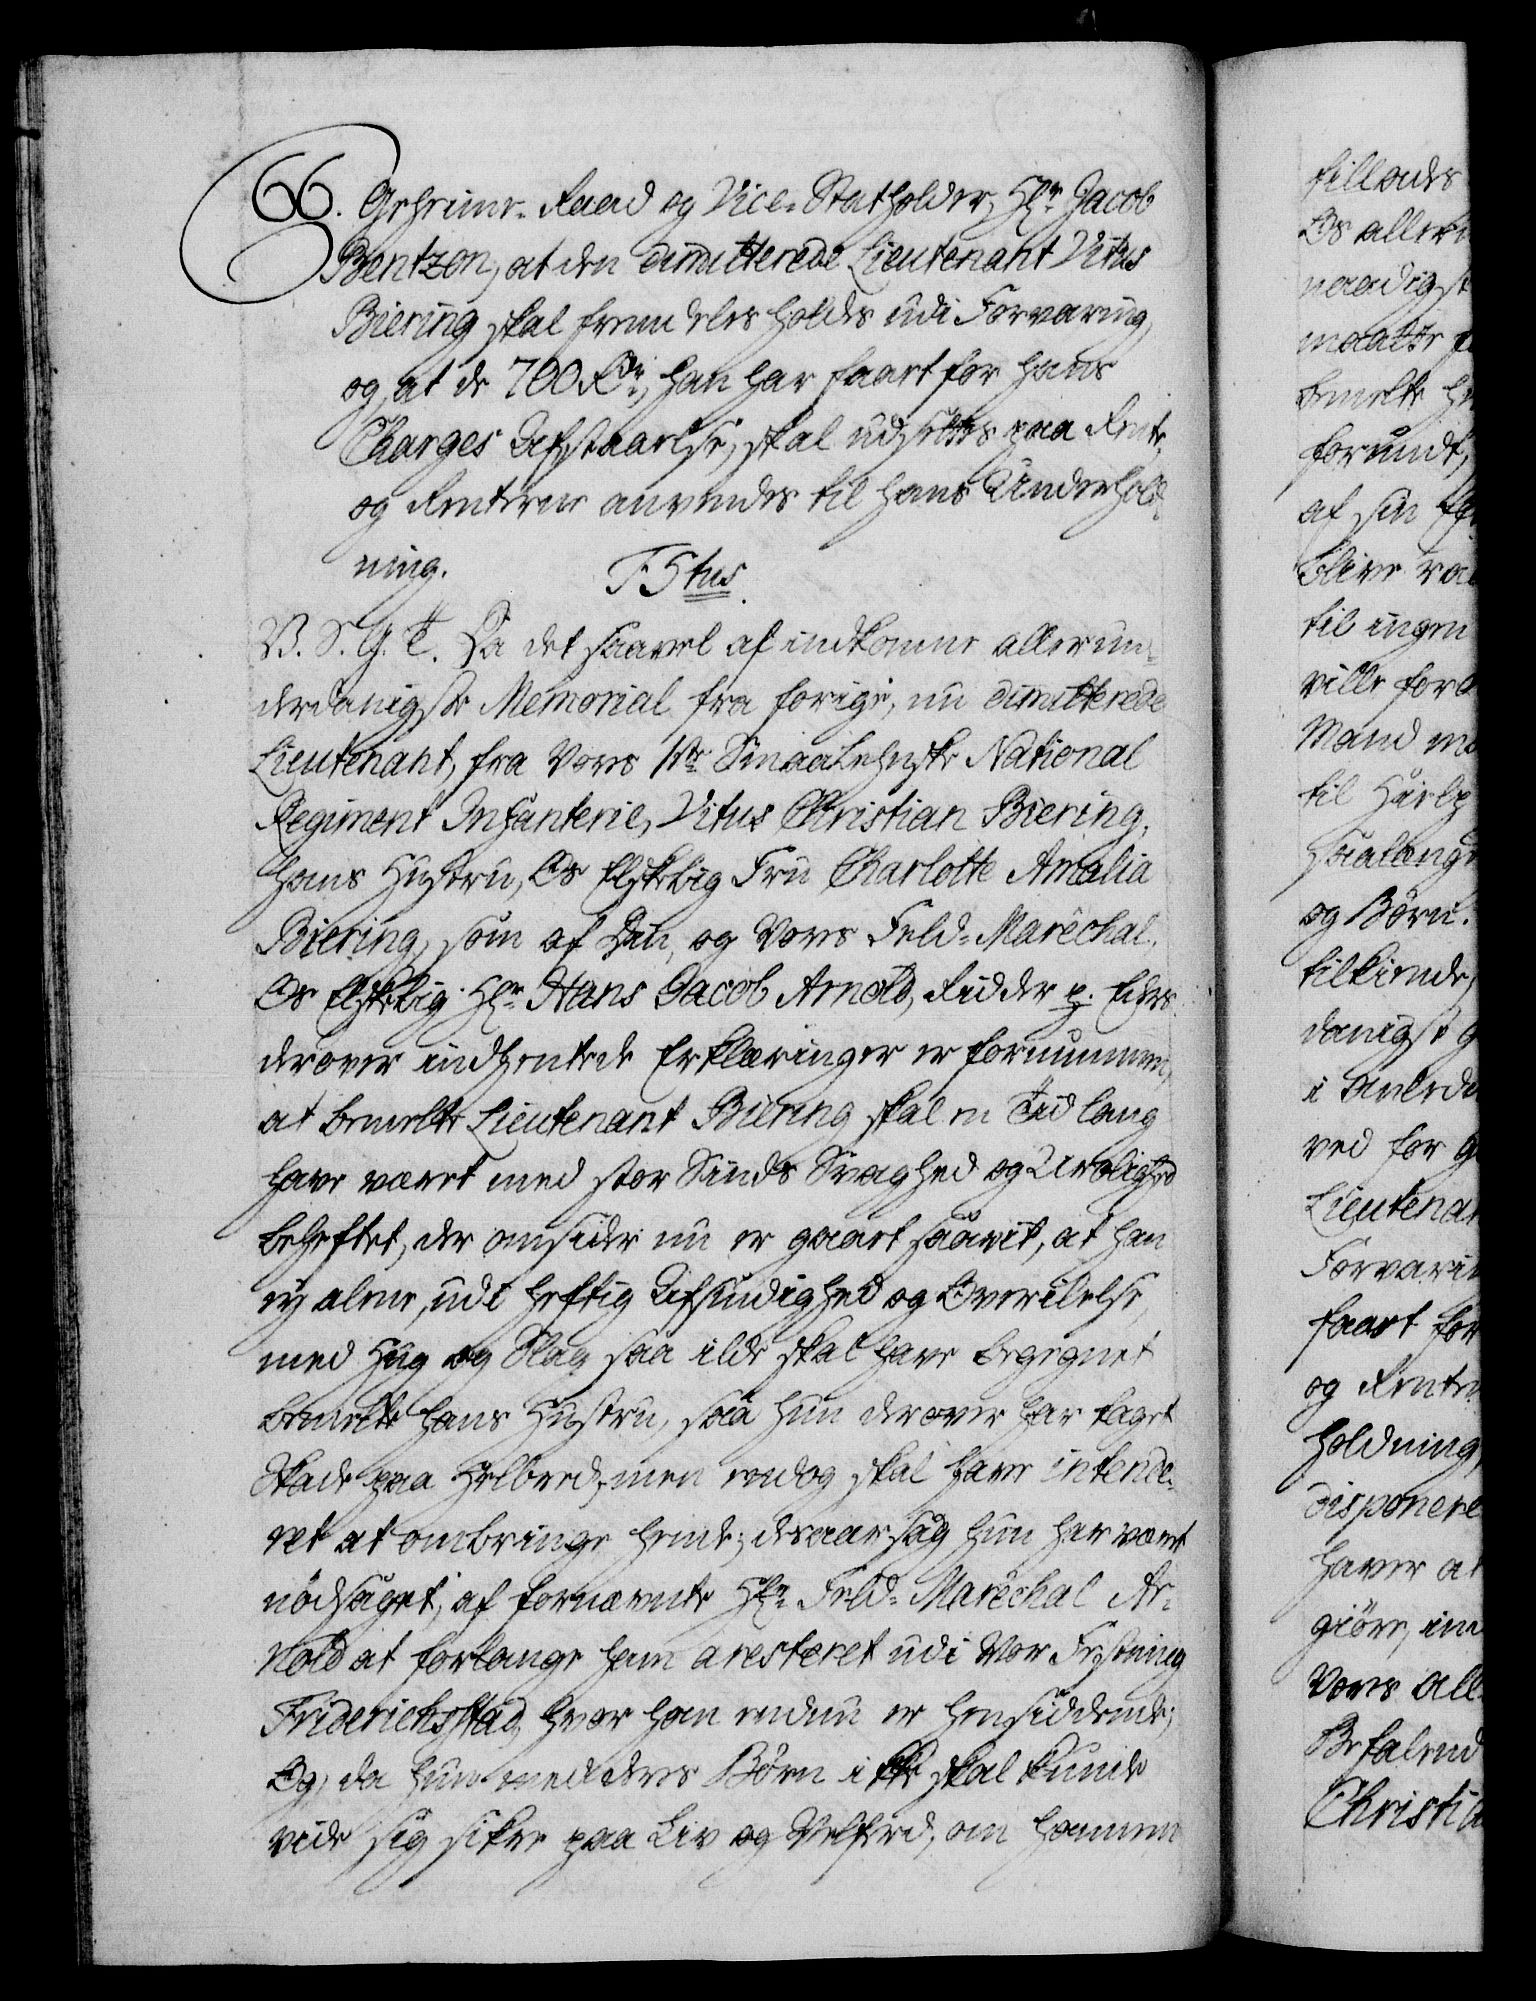 66. Geheime-Raad og Vice-Statholder, Hr. Jacob
Bentzon, at den dimitterede Lieutenant Vitus
Biering skal fremdeles holdes udi Forvaring,
og at de 700 Rdr., han har faaet for hans
Charges Afstaaelse, skal udsettes paa Rente,
og Renterne anvendes til hans Underhold-
ning.
F 5tus.
V. S. G. T. Da det saavel af indkomne allerun-
derdanigste Memorial fra forige, nu dimitterede
Lieutenant, fra Vores 1ste Smaalehnske National
Regiment Infanterie, Vitus Christian Biering,
hans Hustru, Os Elskelig Fru Charlotte Amalia
Biering, som af Din, og Vores Feld-Marêchal,
Os Elskelig Hr. Hans Jacob Arnold, Ridder p. Eders
derover indhentede Erklæringer er fornummen,
at bemelte Lieutenant Biering skal en Tid lang
have været med stor Sinds Svaghed og Urolighed
beheftet, der omsider nu er gaaet saavit, at han
ey alene, udi heftig Afsindighed og Overilelse,
med Hug og Slag saa ilde skal have begegnet
bemelte hans Hustru, saa hun derover har taget
Skade paa Helbred, men endog skal have intende-
ret at ombringe hende; desaarsag hun har været
nödsaget, af fornævnte Hr. Feld-Marêchal Ar-
nold at forlange ham aresteret udi Vor Festning
Friderichsstad, hvor han endnu er hensiddende;
Og, da hun med deres Börn ikke skal kunde
vide sig sikre paa Liv og Velferd, om hannem
tillades
Os aller
naadigst
maatte
bemelte
forundt,
af sin
blive
til ingen
ville
Mand
til Hielp
saalænge
og Börn.
tilkiende,
danigst
i
ved for
Lieutenan
Forvarin
faaet for
og Renter
holdning,
disponere
haver at
giöre,
Vores All
Befalend
Christia